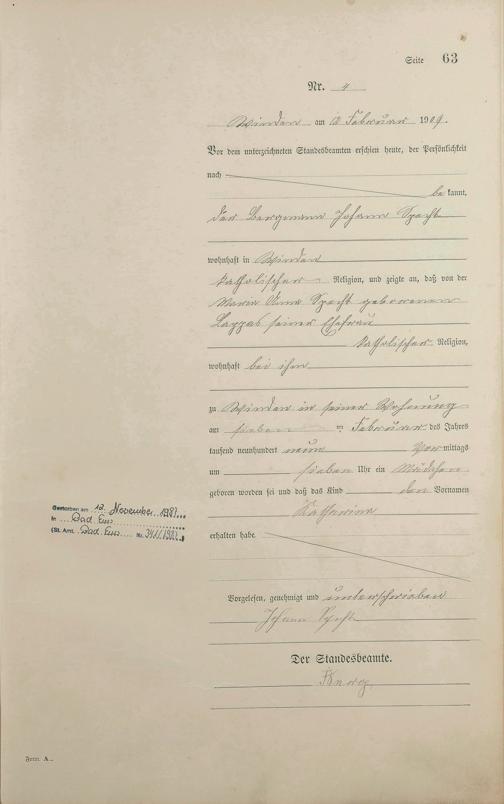 Seite 63
Nr. 4
Winden am Februar 1909.
Vor dem unterzeichneten Standesbeamten erschien heute, der Persönlichkeit
nach
be kannt,
der Bergmann Johann Specht
wohnhaft in Winden
katholischer Religion, und zeigte an, daß von der
Maria Anna Specht geborenen
Lappas seiner Ehefrau
katholischer Religion,
wohnhaft bei ihm
zu Winden in seiner Wohnung
am sieben ten Februar des Jahres
tausend neunhundert neun Vor mittags
um sieben Uhr ein Mädchen
geboren worden sei und daß das Kind den Vornamen
Katharina
erhalten habe.
Gestorben am 12. November 1982
in Bad Ems
(St. Amt Bad Ems Nr.
Vorgelesen, genehmigt und unterschrieben
Johann Specht
Der Standesbeamte.
Form. A.